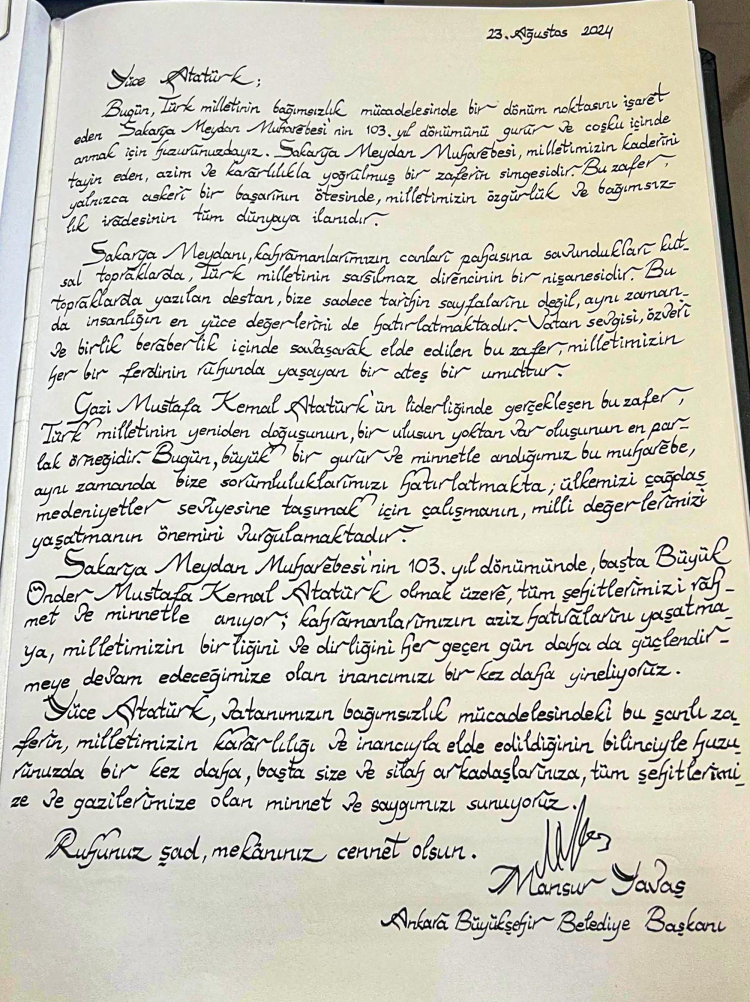 23. Ağustos 2024
Yüce Atatürk;
Bugün, Türk milletinin bağımsızlık mücadelesinde bir dönüm noktasını işaret
eden Sakarya Meydan Muharebesi'nin 103. yıl dönümünü gurur ve coşku içinde
anmak için huzurunuzdayız. Sakarya Meydan Muharebesi, milletimizin kaderini
tayin eden, azim ve kararlılıkla yoğrulmuş bir zaferin simgesidir. Bu zafer,
yalnızca askeri bir başarının ötesinde, milletimizin özgürlük ve bağımsız-
lık iradesinin tüm dünyaya ilanıdır.
Sakarya Meydanı, kahramanlarımızın canları pahasına savundukları kut-
sal topraklarda, Türk milletinin sarsılmaz direncinin bir nişanesidir. Bu
topraklarda yazılan destan, bize sadece tarihin sayfalarını değil, aynı zaman-
da insanlığın en yüce değerlerini de hatırlatmaktadır. Vatan sevgisi, özveri
ve birlik beraberlik içinde savaşarak elde edilen bu zafer, milletimizin
her bir ferdinin ruhunda yaşayan bir ateş bir umuttur.
Gazi Mustafa Kemal Atatürk'ün liderliğinde gerçekleşen bu zafer,
Türk milletinin yeniden doğuşunun, bir ulusun yoktan var oluşunun en par-
lak örneğidir. Bugün, büyük bir gurur ve minnetle andığımız bu muharebe,
aynı zamanda bize sorumluluklarımızı hatırlatmakta; ülkemizi çağdaş
medeniyetler seviyesine taşımak için çalışmanın, milli değerlerimizi
yaşatmanın önemini vurgulamaktadır.
Sakarya Meydan Muharebesi'nin 103. yıl dönümünde, başta Büyük
Önder Mustafa Kemal Atatürk olmak üzere, tüm şehitlerimizi rah-
met ve minnetle anıyor; kahramanlarımızın aziz hatıralarını yaşatma-
ya, milletimizin birliğini ve dirliğini her geçen gün daha da güçlendir-
meye devam edeceğimize olan inancımızı bir kez daha yineliyoruz.
Yüce Atatürk, vatanımızın bağımsızlık mücadelesindeki bu şanlı za-
ferin, milletimizin kararlılığı ve inancıyla elde edildiğinin bilinciyle huzu-
runuzda bir kez daha, başta size ve silah arkadaşlarınıza, tüm şehitlerimi-
ze ve gazilerimize olan minnet ve saygımızı sunuyoruz.
Ruhunuz şad, mekânınız cennet olsun.
Mansur Yavaş
Ankara Büyükşehir Belediye Başkanı